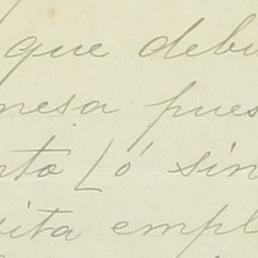 que debu
mesa pues
nto Ló sin
sita empl